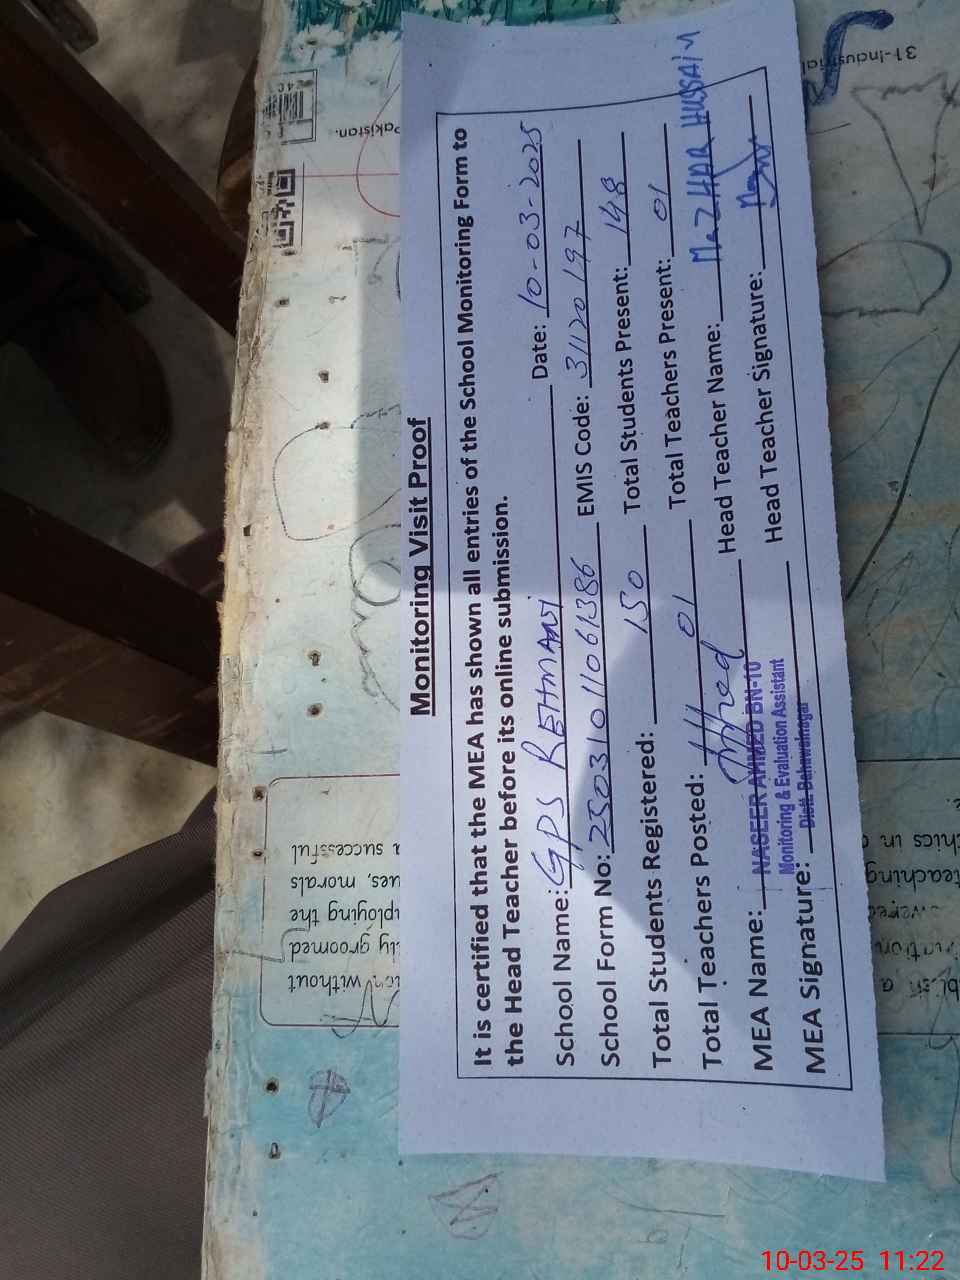 Monitoring Visit Proof
It is certified that the MEA has shown all entries of the School Monitoring Form to
the Head Teacher before its online submission.
School Name: GPS REHMANI Date: 10-03-2025
School Form No: 25031011061386 EMIS Code: 31120197
Total Students Registered: 150 Total Students Present: 148
Total Teachers Posted: 01 Total Teachers Present: 01
MEA Name: NASEER AHMED BN-10 Head Teacher Name: MAZHAR HUSSAIN
Monitoring & Evaluation Assistant
MEA Signature: Distt. Bahawalnagar Head Teacher Signature:
31-Industrial
Pakistan.
without
ly groomed
ploying the
ues, morals
a successful
teaching
hics in
10-03-25 11:22